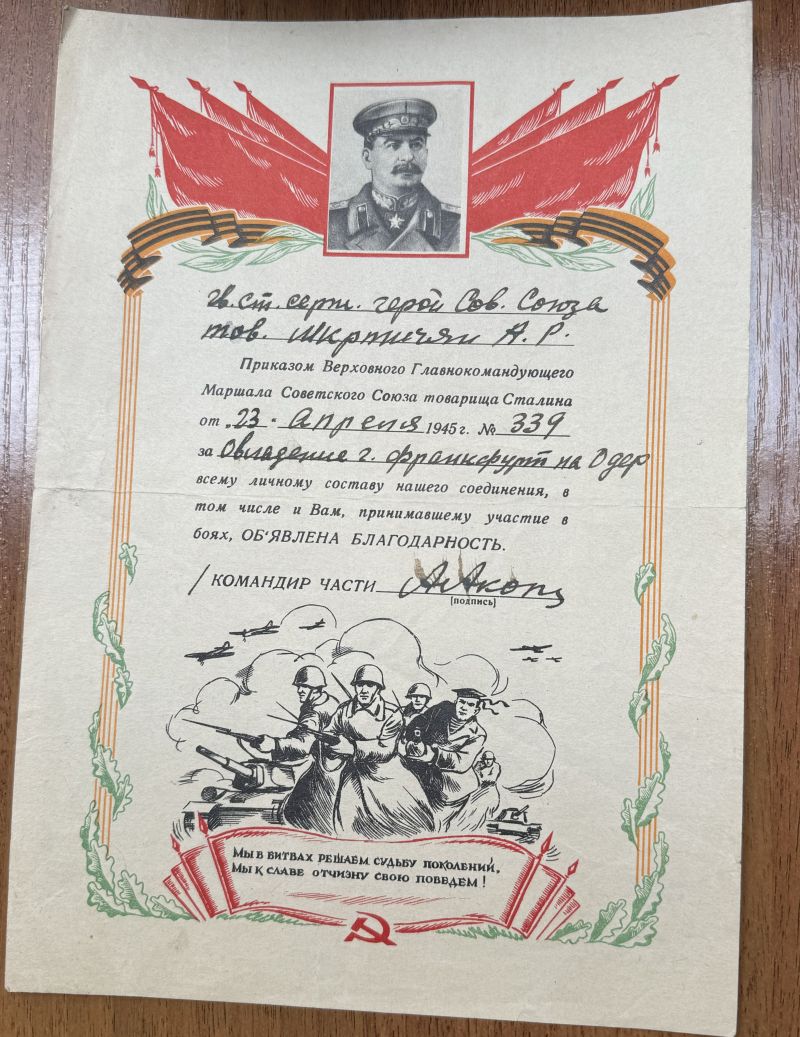 гв. ст. серж. герой Сов. Союза
тов. Мкртичян А. Р.
Приказом Верховного Главнокомандующего
Маршала Советского Союза товарища Сталина
от „23“ апреля 1945 г. № 339
за Овладение г. франкфурт на Одер
всему личному составу нашего соединения, в
том числе и Вам, принимавшему участие в
боях, ОБ'ЯВЛЕНА БЛАГОДАРНОСТЬ.
КОМАНДИР ЧАСТИ
(подпись)
Мы в битвах решаем судьбу поколений,
Мы к славе отчизну свою поведем!